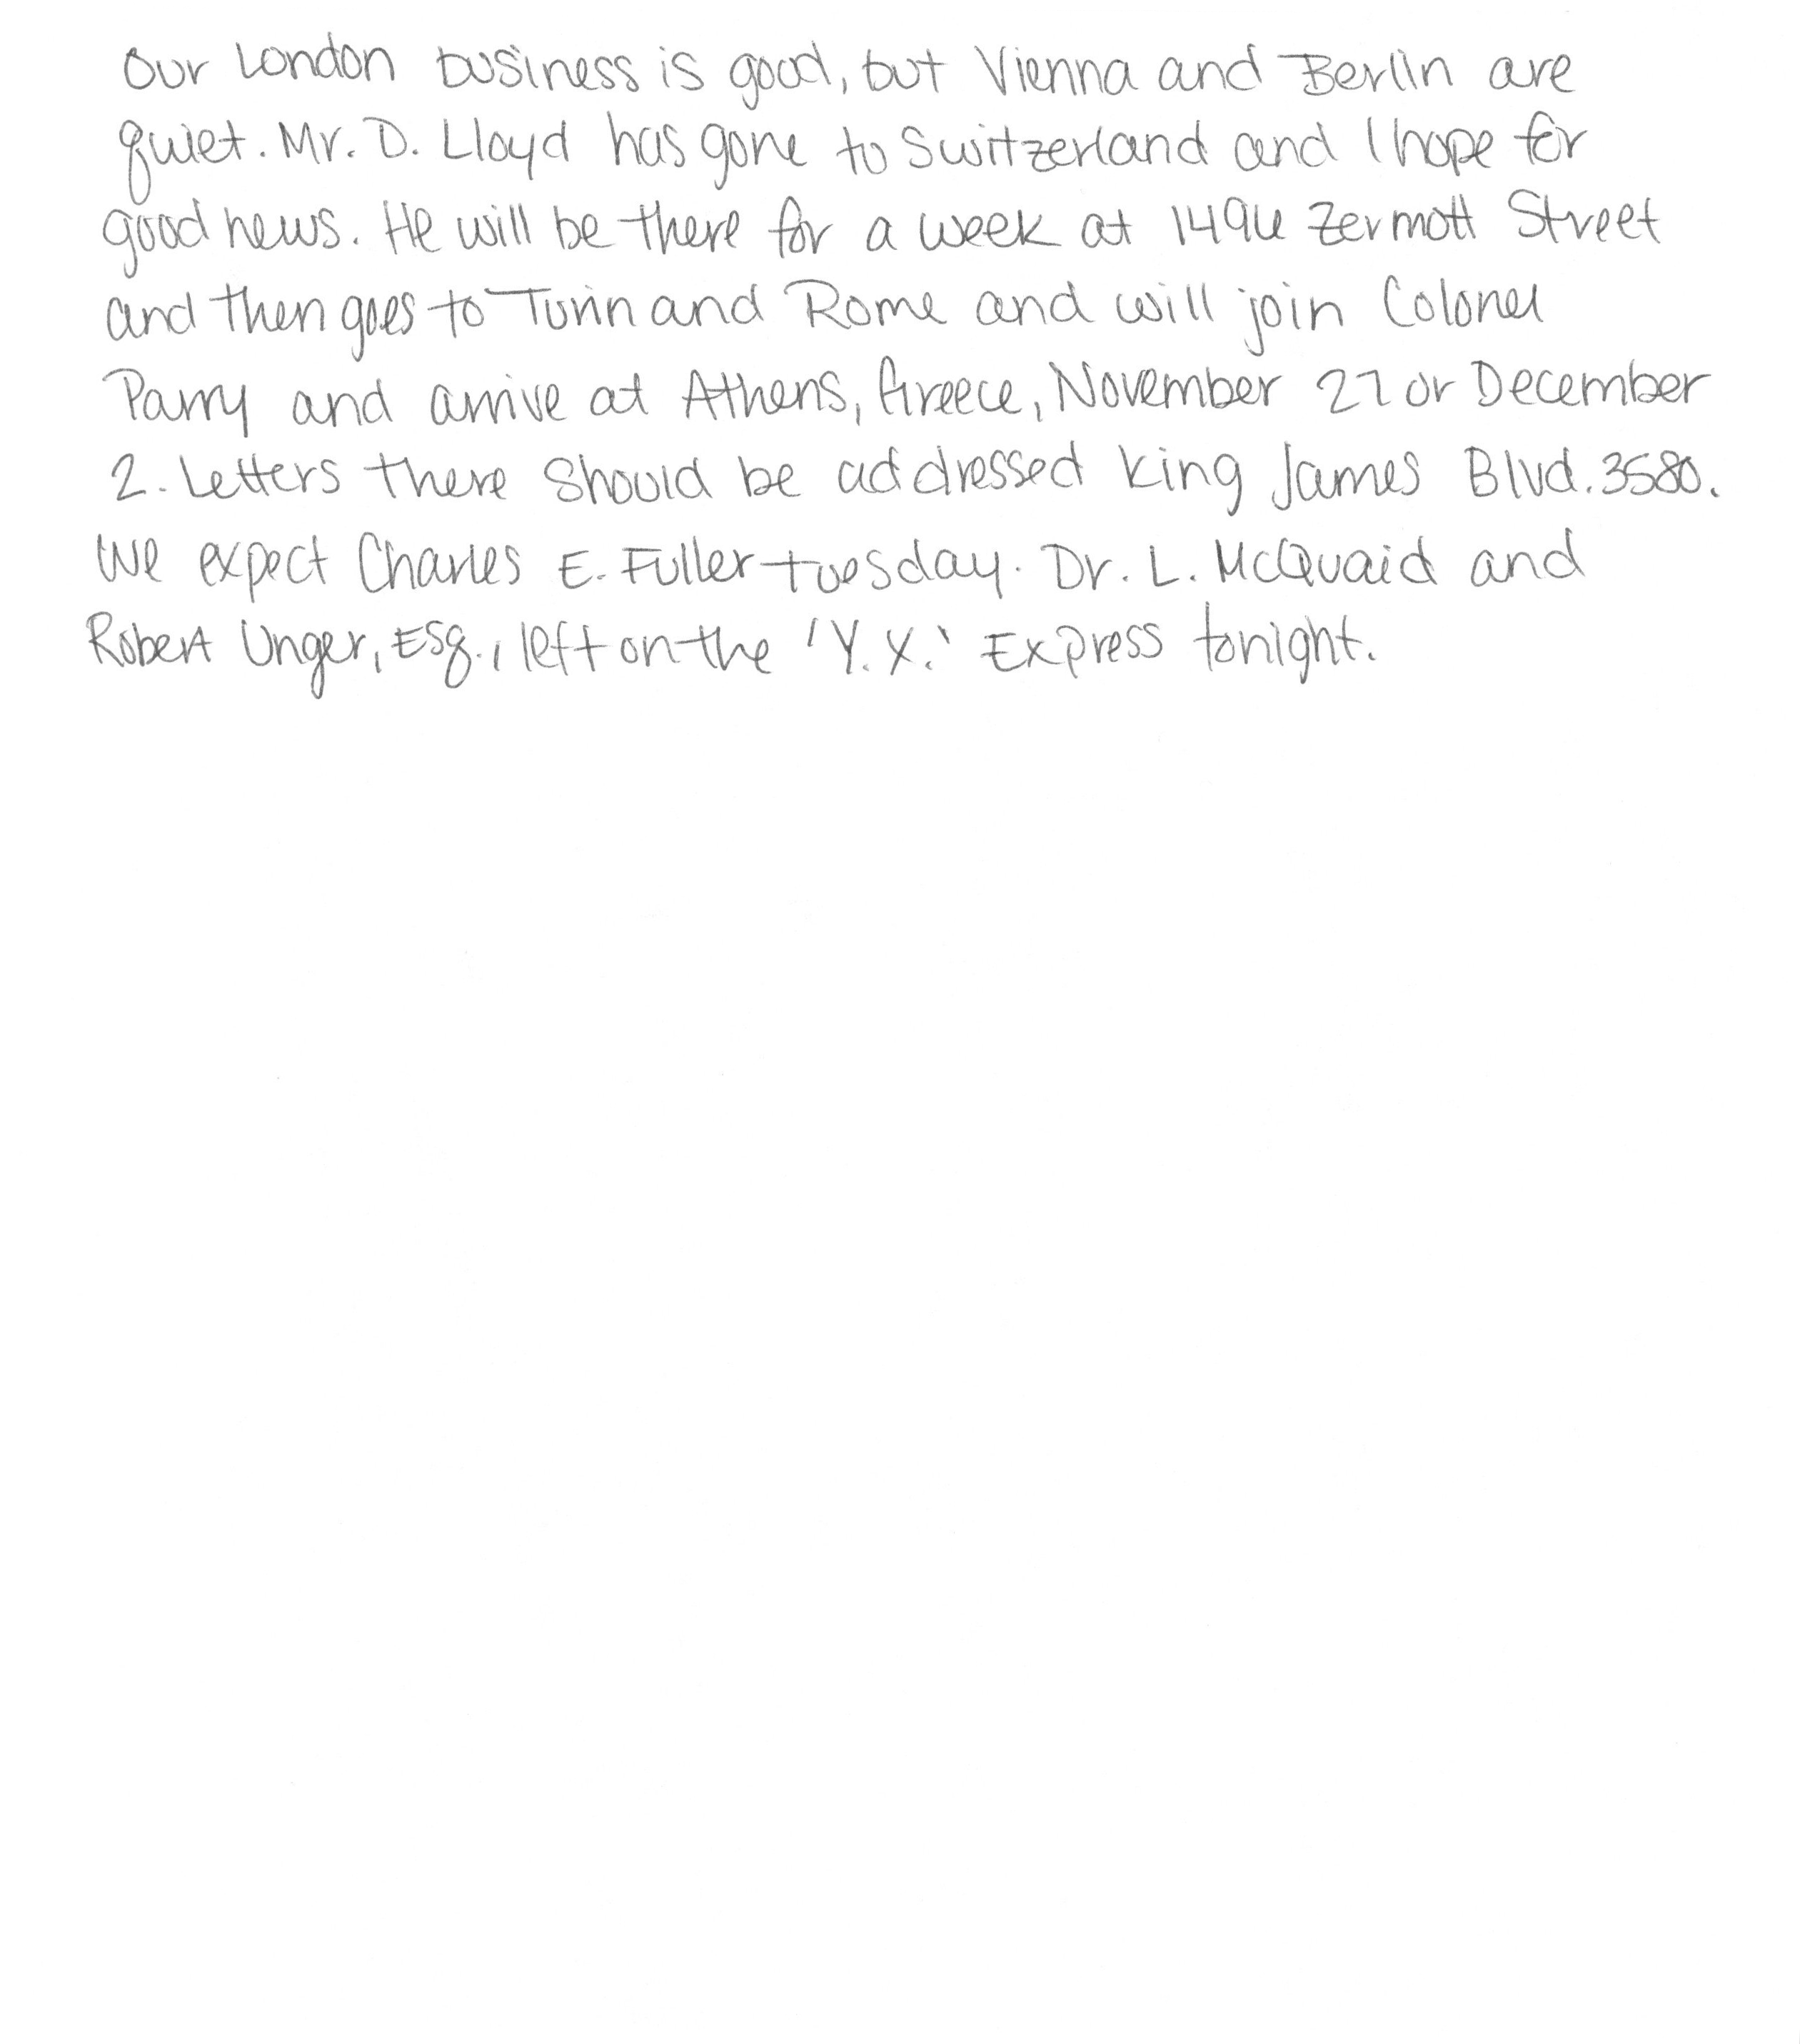 Our London business is good, but Vienna and Berlin are
quiet. Mr. D. Lloyd has gone to Switzerland and I hope for
good news. He will be there for a week at 1496 Zermott Street
and then goes to Turin and Rome and will join Colonel
Parry and arrive at Athens, Greece, November 27 or December
2. Letters there Should be addressed King James Blvd. 3580.
We expect Charles E. Fuller tuesday. Dr. L. McQuaid and
Robert Unger, Esq., left on the 'Y.X.' Express tonight.